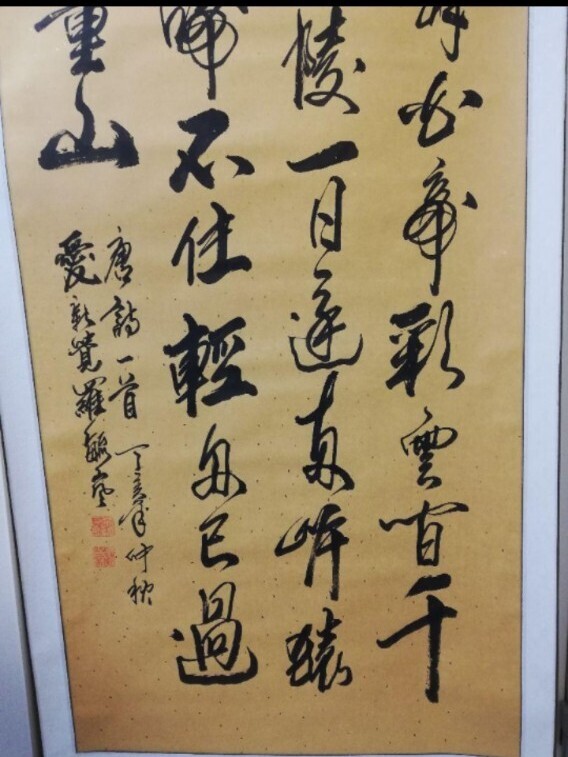 白帝彩雲間千
陵一日還兩岸猿
啼不住輕舟已過
重山
唐詩一首 丁亥年仲秋
愛新覺羅毓